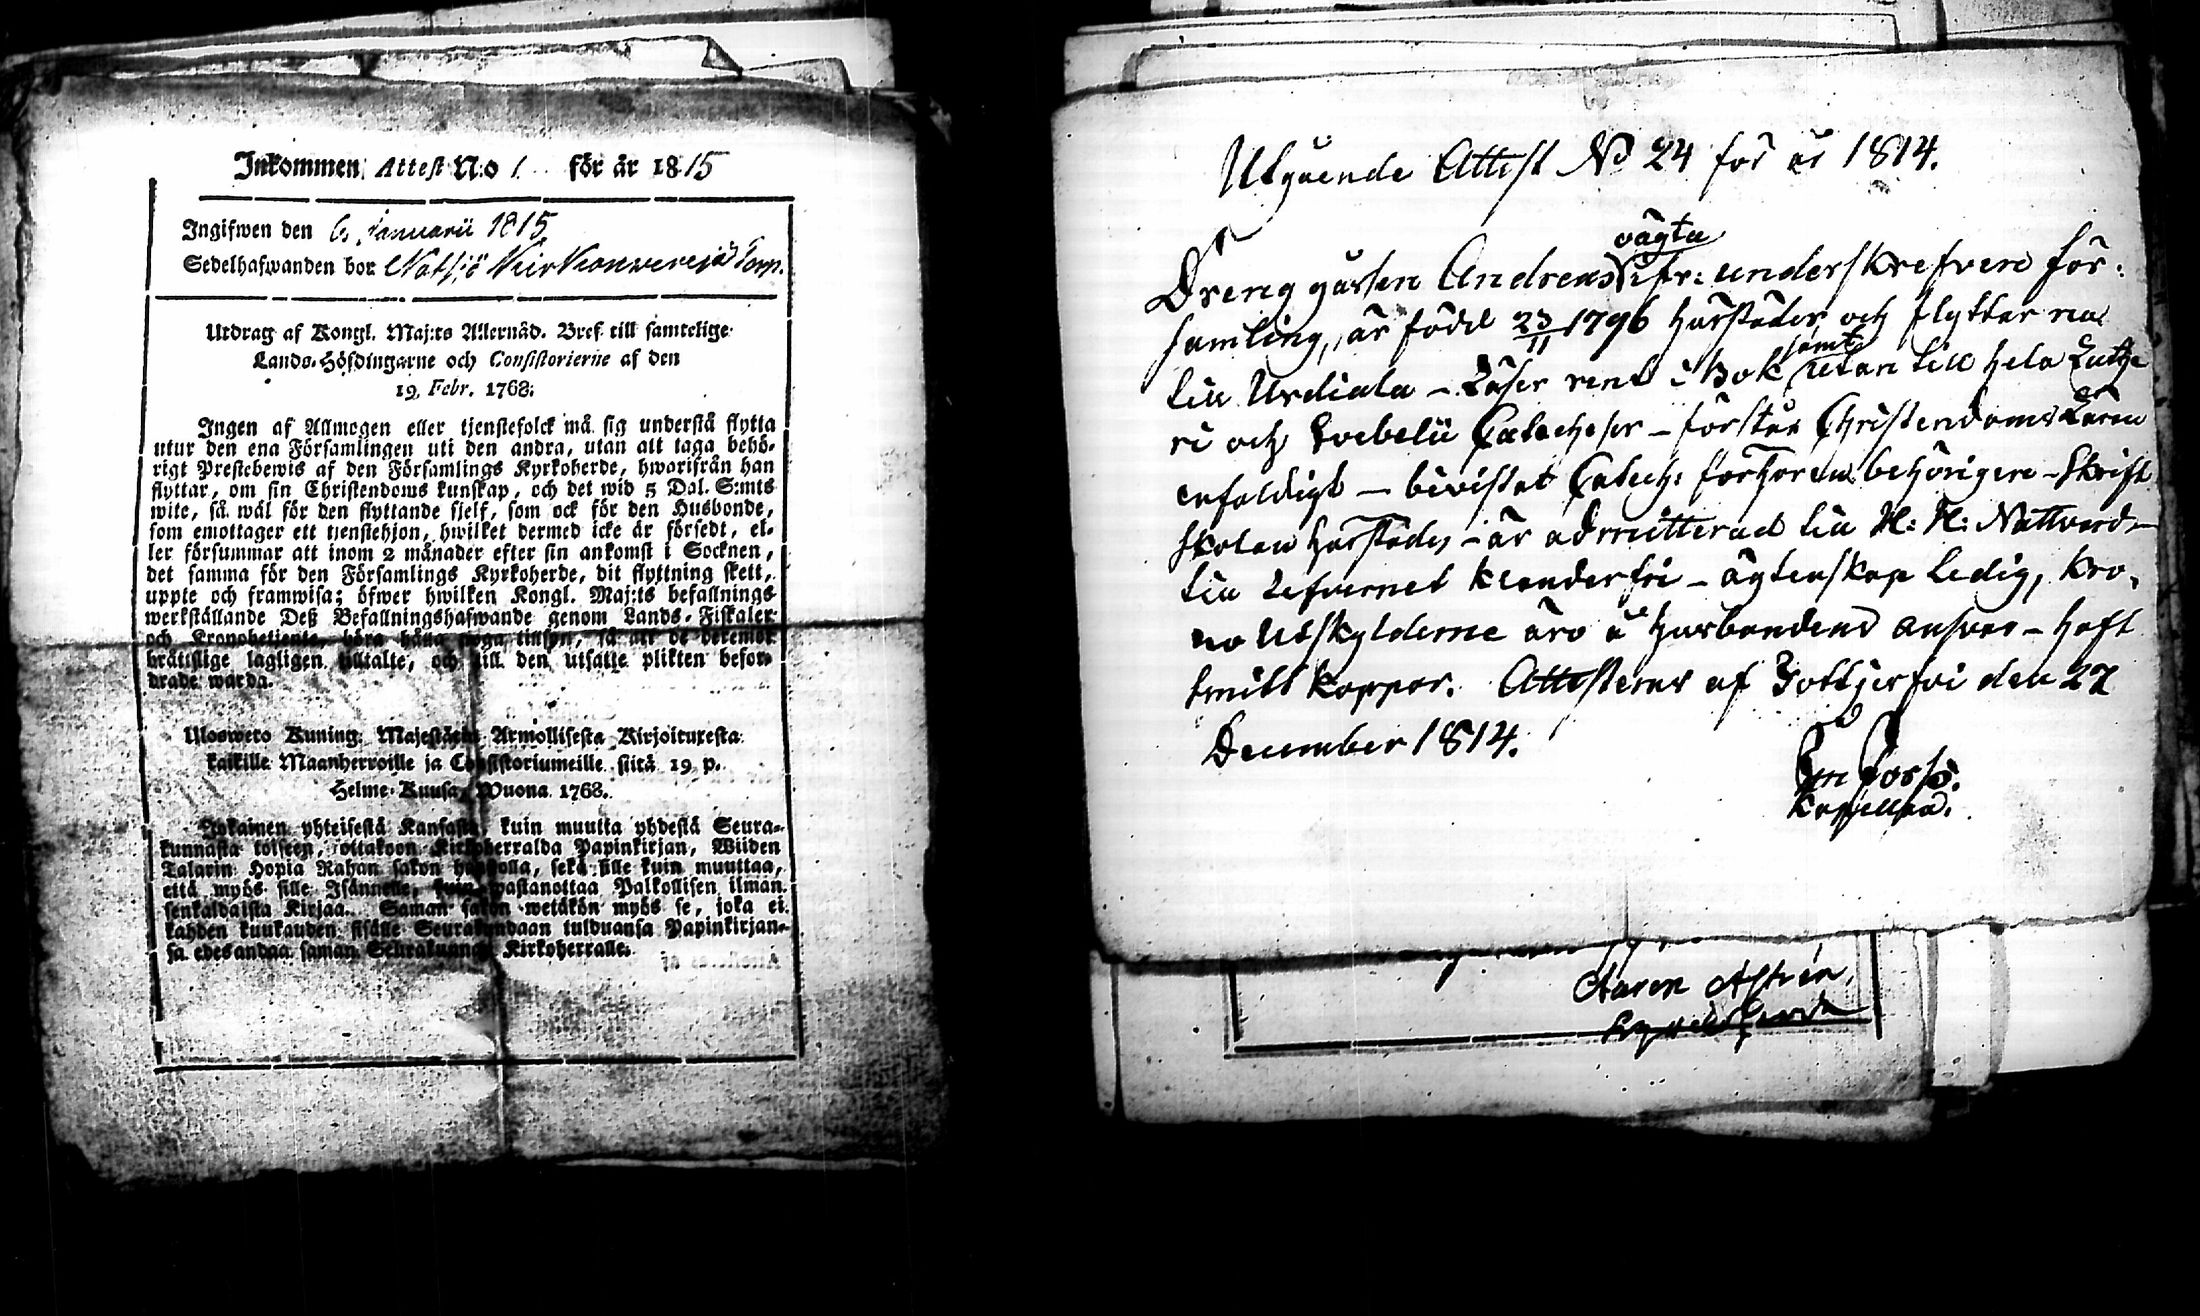 Inkommen Attest N:o 1 för år 1815
Ingifwen den 6 Januarii 1815
Sedelhafwanden bor Torp.
Utdrag af Kongl. Maj:ts Allernåd. Bref till samtelige
Lands-Höfdingarne och Consistorierne af den
19. Febr. 1768.
Ingen af Allmogen eller tjenstefolck må sig understå flytta
utur den ena Församlingen uti den andra, utan att taga behö-
rigt Prestebewis af den Församlings Kyrkoherde, hwarifrån han
flyttar, om sin Christendoms kunskap, och det wid 5 Dal. S:mts
wite, så wäl för den flyttande sjelf, som ock för den Husbonde,
som emottager ett tjenstehjon, hwilket dermed icke är försedt, el-
ler försummar att inom 2 månader efter sin ankomst i Socknen,
det samma för den Församlings Kyrkoherde, dit flyttning skett,
uppte och framwisa; öfwer hwilken Kongl. Maj:ts befallnings
werkställande Deß Befallningshafwande genom Lands-Fiskaler
och Kronobetjente böra hålla noga tillsyn, så att de deremot
bråttslige lagligen tilltalte, och till den utsatte plikten befor-
drade warda.
Ulosweto Kuning. Majestätin Armollisesta Kirjoituxesta
kaikille Maanherroille ja Consistoriumeille siitä 19 p.
Helme-Kuusa Wuona 1768.
Jokainen yhteisestä Kansasta, kuin muutta yhdestä Seura-
kunnasta toiseen, ottakoon Kirkoherralda Papinkirjan, Wiiden
Talarin Hopia Rahan sakon haastolla, sekä sille kuin muuttaa,
että myös sille Isännelle, kuin wastanottaa Palkollisen ilman
senkaldaista Kirjaa. Saman sakon wetäkön myös se, joka ei
kahden kuukauden sisälle Seurakundaan tulduansa Papinkirjan-
sa edesandaa saman Seurakunnan Kirkoherralle.
Utgående Attest No 24 för år 1814.
vägta
Dreng gåssen Andreas ifr: underskrefvene för-
samling, är född 23/11 1796 härstädes och flyttar nu
samt
till Urdiala - Läser rent i Bok utan till hela Luthe
ri och Svebelii Catecheser - förstår Christendoms Läran
enfaldigt - bevistat Catech: förhören behörigen - Skrift
skolan härstädes - är admitterad till H: H: Nattvard -
till Lefvernet klanderfri - ägtenskap ledig, Kro-
no Utskylderne äro å husbondens ansvar - haft
smitt koppor. Attesteras af den 27
December 1814.
Em Forss.
Kapellan.
Aaron